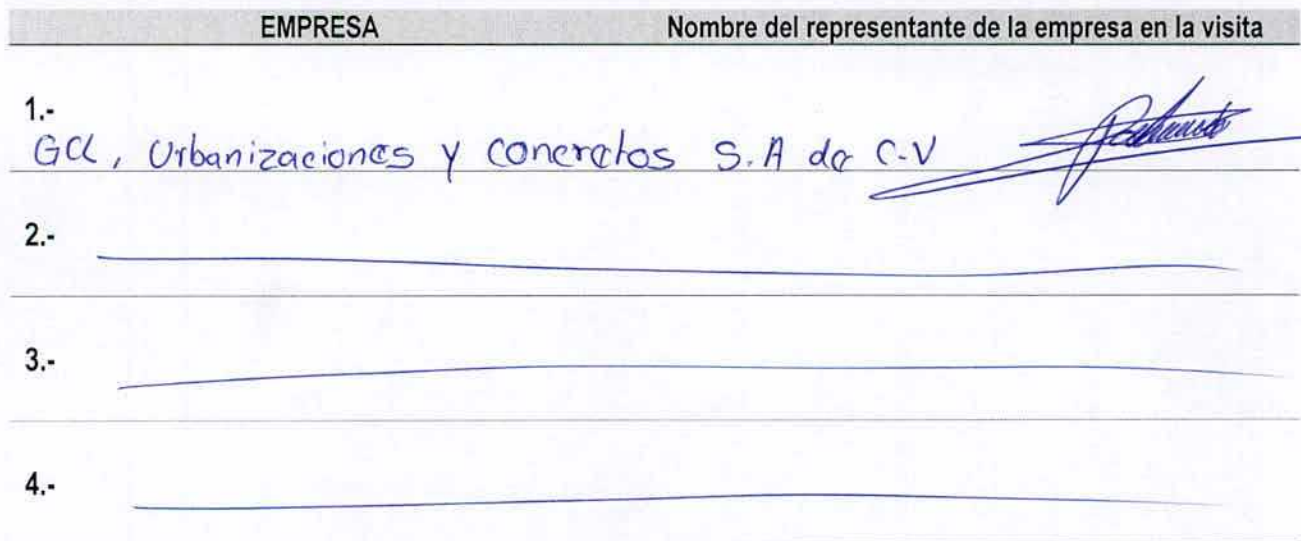 EMPRESA Nombre del representante de la empresa en la visita
1.-
GCL, Urbanizaciones y concretos S.A de C.V
2.-
3.-
4.-